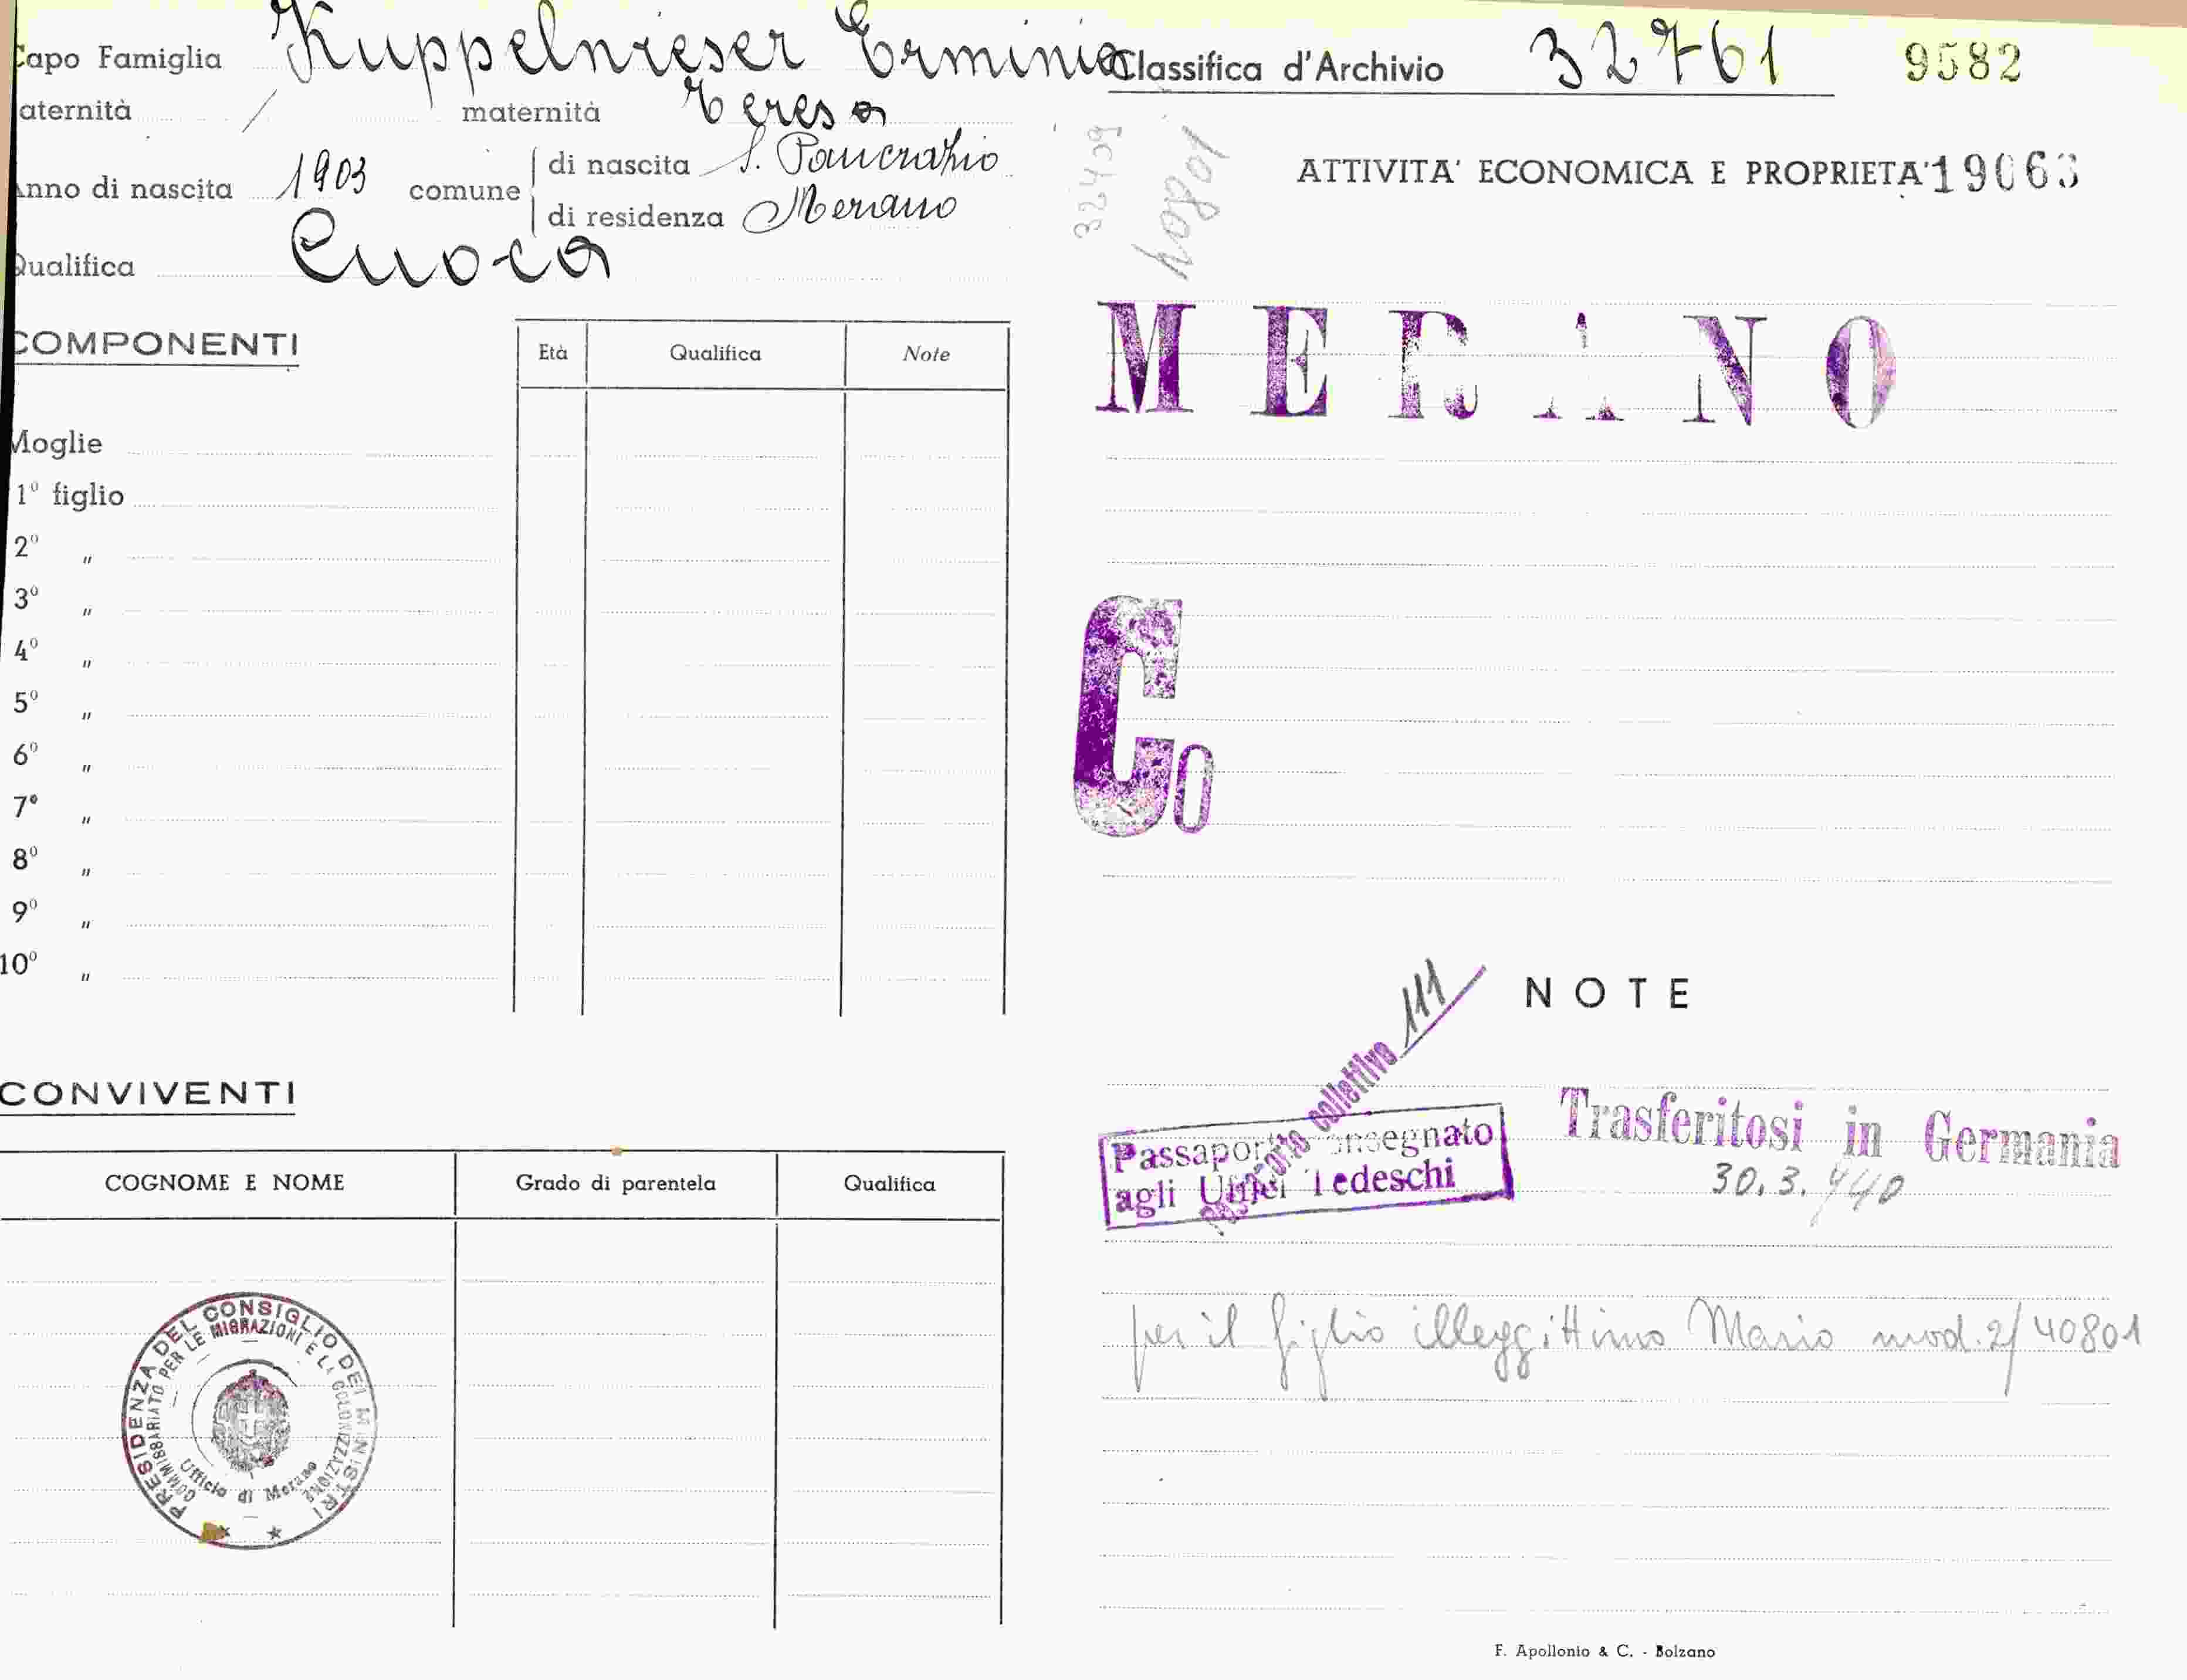 Capo Famiglia Kuppelwieser Erminia
aternità / maternità Teresa
Anno di nascita 1903 comune di nascita S. Pancrazio
di residenza Merano
Qualifica Cuoca
COMPONENTI
Età Qualifica Note
Moglie
1º figlio
2º "
3º "
4º "
5º "
6º "
7º "
8º "
9º "
10º "
CONVIVENTI
COGNOME E NOME Grado di parentela Qualifica
PRESIDENZA DEL CONSIGLIO DEI MINISTRI
COMMISSARIATO PER LE MIGRAZIONI E LA COLONIZZAZIONE
Ufficio di Merano
Classifica d'Archivio 32761 9582
32409
40801
ATTIVITA' ECONOMICA E PROPRIETA' 19063
MERANO
Co
NOTE
Passaporto collettivo 111
Passaporto consegnato
agli Uffici Tedeschi
Trasferitosi in Germania
30.3.940
per il figlio illeggittimo Mario mod. 2/40801
F. Apollonio & C. - Bolzano